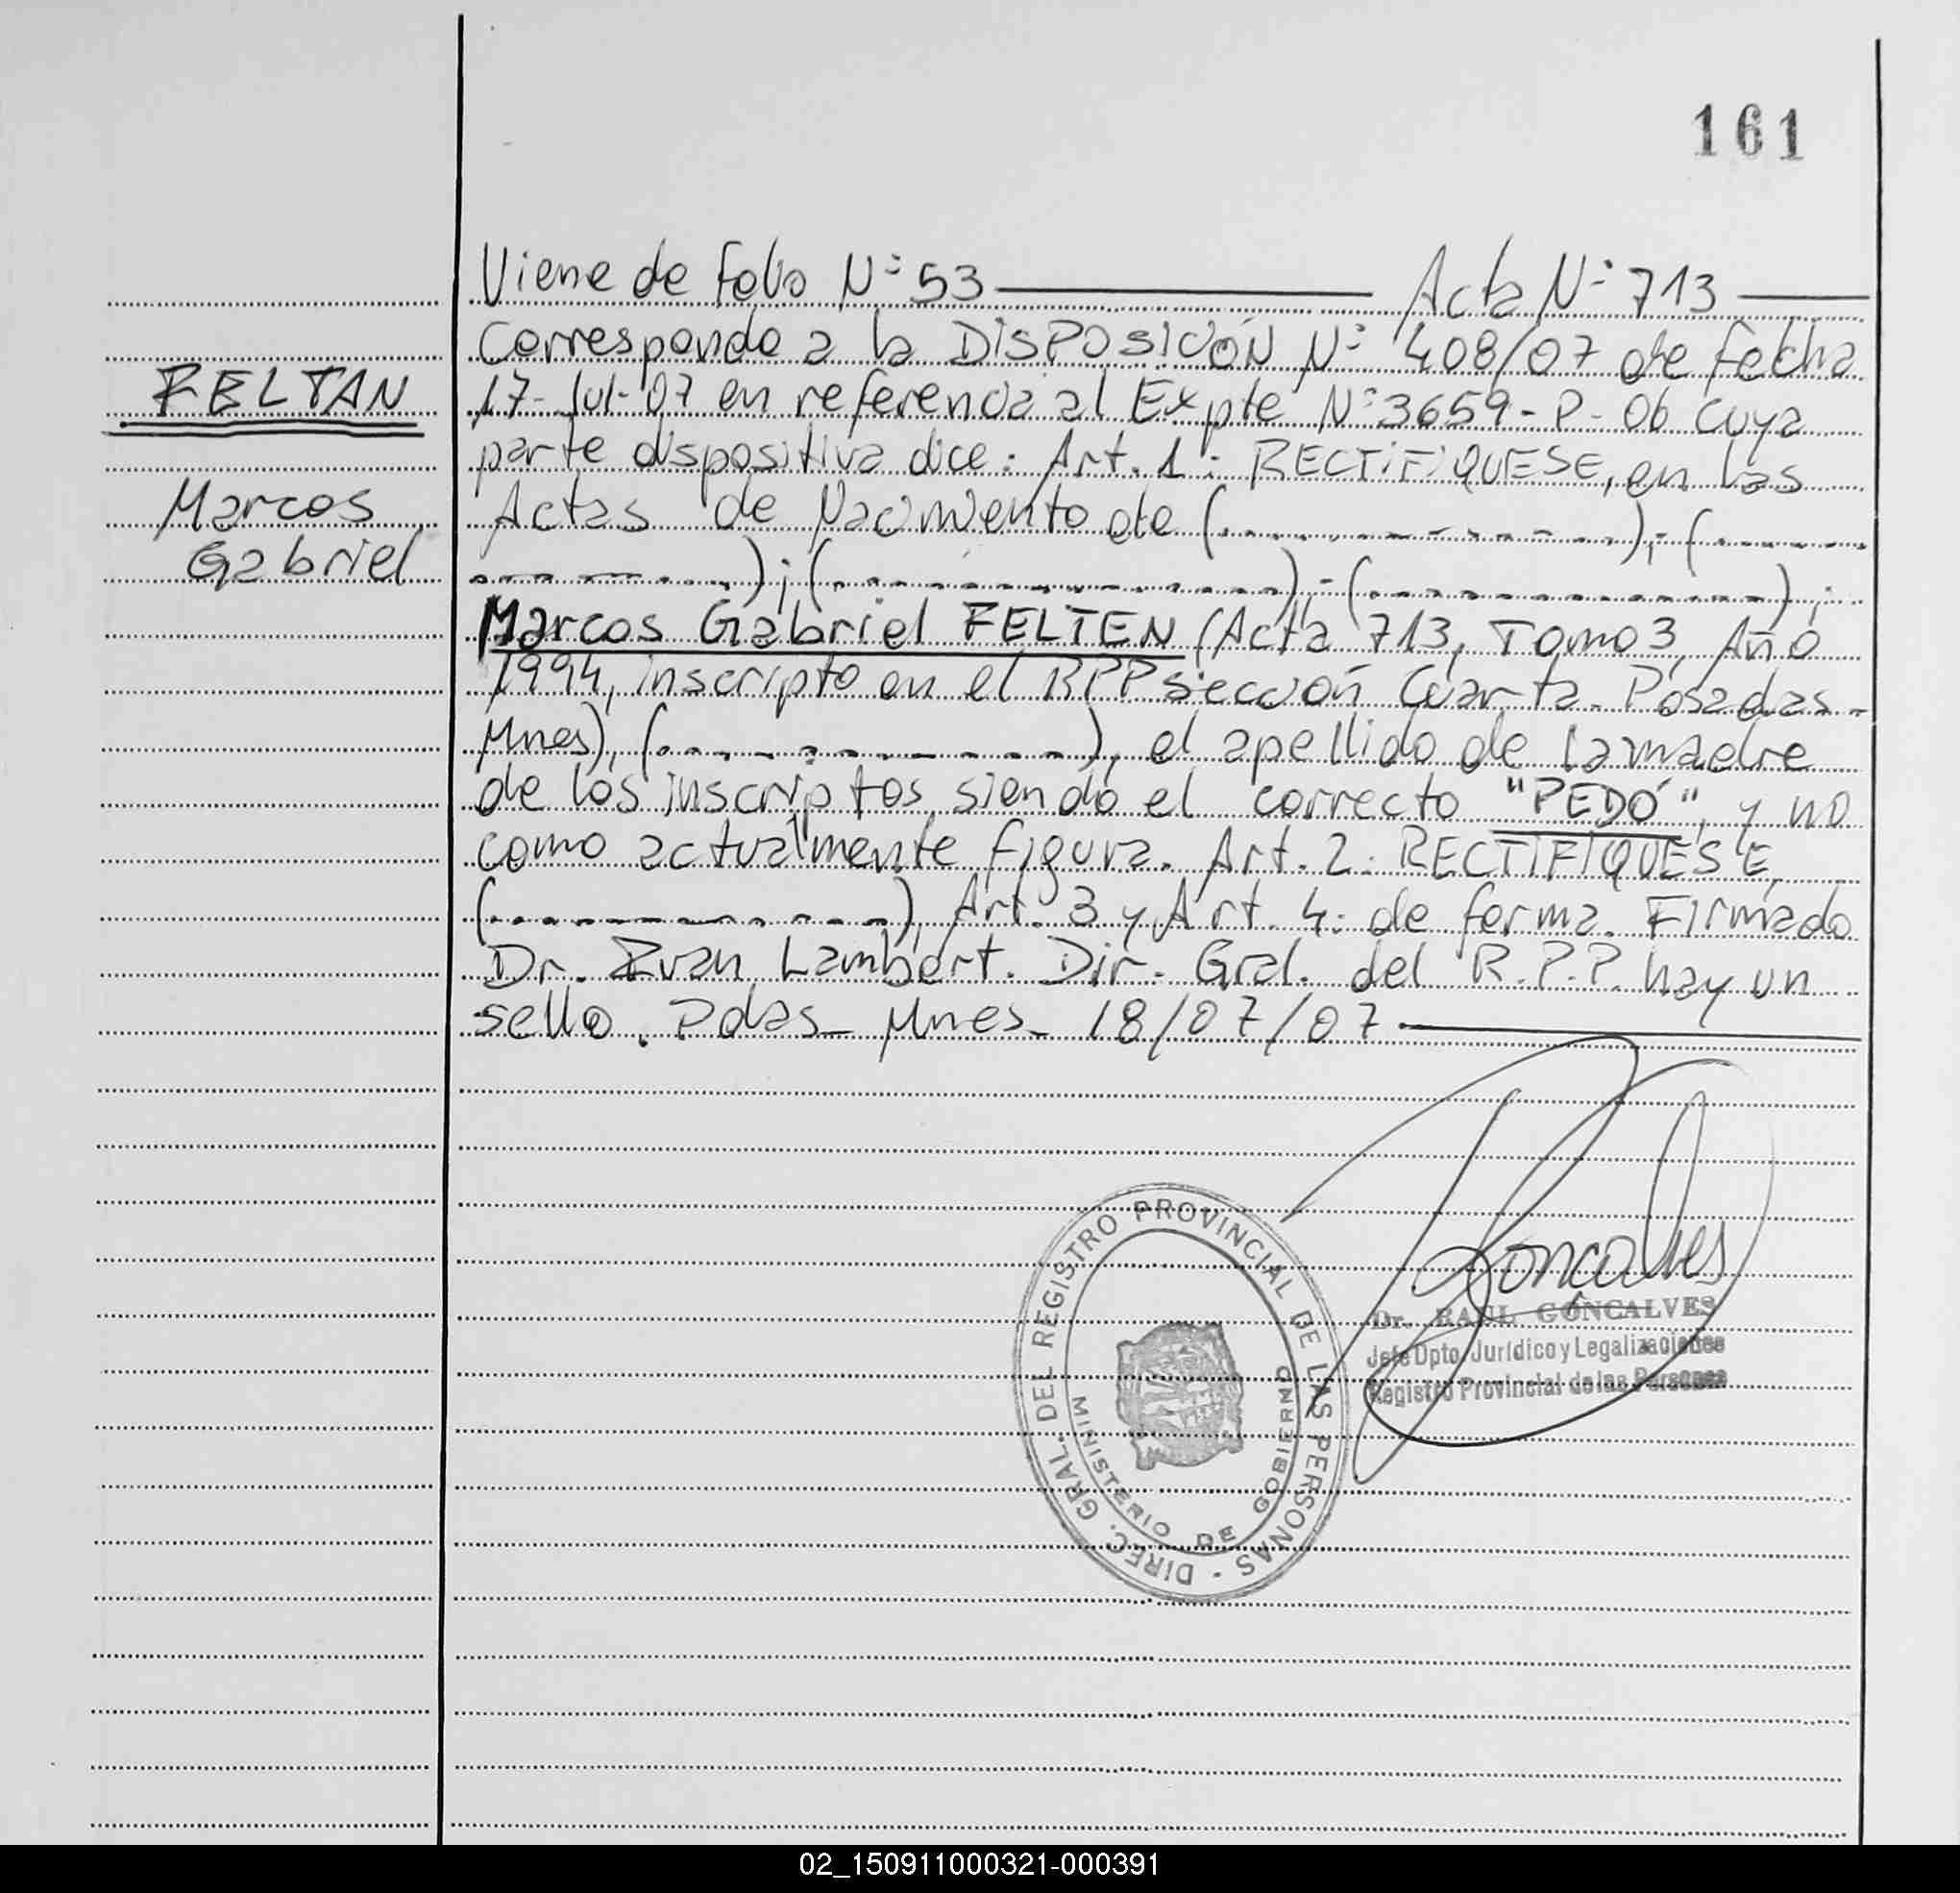 161
Viene de folio N° 53 Acta N° 713
Corresponde a la DISPOSICIÓN N° 408/07 de fecha
FELTAN
17-Jul-07 en referencia al Expte N° 3659-P-06 cuya
parte dispositiva dice: Art. 1: RECTIFIQUESE, en las
Marcos
Actas de Nacimiento de (............); (......
Gabriel
............); (............); (............);
Marcos Gabriel FELTEN (Acta 713, Tomo 3, Año
1994, inscripto en el RPP sección Cuarta. Posadas-
Mnes), (............), el apellido de la madre
de los inscriptos, siendo el correcto "PEDÓ", y no
como actualmente figura. Art. 2: RECTIFIQUESE,
(............), Art. 3 y Art. 4: de forma. Firmado
Dr. Ivan Lambert. Dir. Gral. del R.P.P. hay un
sello. Pdas- Mnes- 18/07/07
Gonçalves
Dr. RAUL GONCALVES
Jefe Dpto. Jurídico y Legalizaciones
Registro Provincial de las Personas
DIREC. GRAL. DEL REGISTRO PROVINCIAL DE LAS PERSONAS -
MINISTERIO DE GOBIERNO
02_150911000321-000391